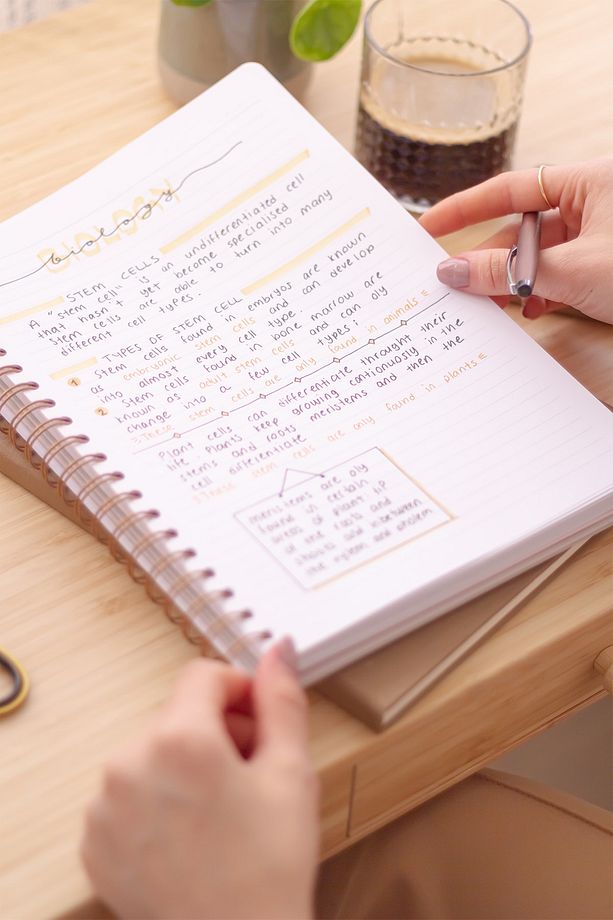 BIOLOGY
biology
STEM CELLS
A "stem cell" is an undifferentiated cell
that hasn't yet become specialised
stem cells are able to turn into many
different cell types.
TYPES OF STEM CELL
1 stem cells found in embryos are known
as embryonic stem cells and can develop
into almost every cell type.
2 stem cells found in bone marrow are
known as adult stem cells and can oly
change into a few cell types;
These stem cells are only found in animals
Plant cells can differentiate throught their
life. plants keep growing continuously in the
stems and roots meristems and then the
cell differentiate
These stem cells are only found in plants
meristems are oly
found in certain
areas of plant tip
of the roots and
shoots and inbetween
the xylem and phloem